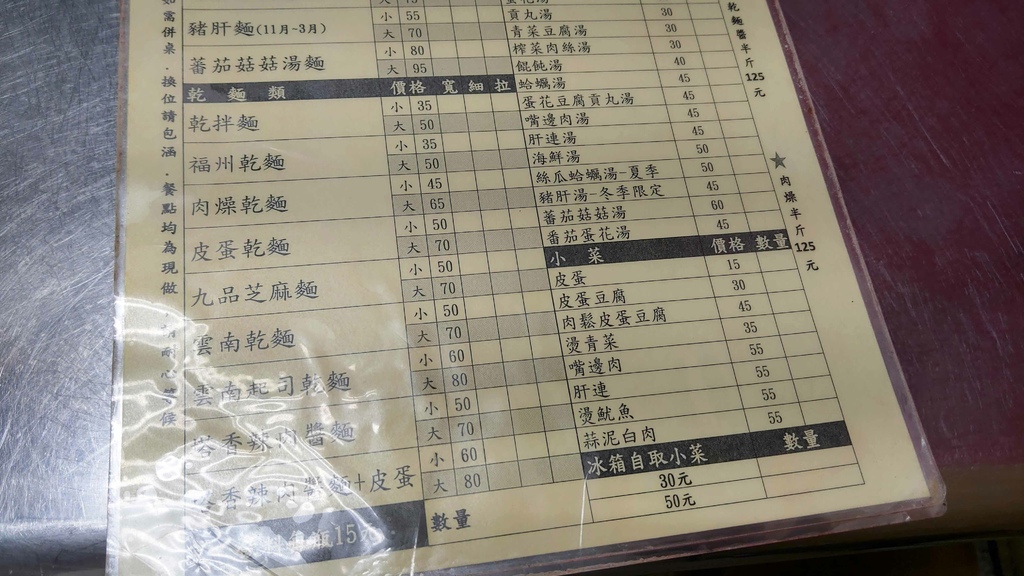 如需併桌．換位請包涵．餐點均為現做
耐心等候
小 55
豬肝麵(11月~3月) 大 70
小 80
蕃茄菇菇湯麵 大 95
乾麵類 價格 寬 細 拉
小 35
乾拌麵 大 50
小 35
福州乾麵 大 50
小 45
肉燥乾麵 大 65
小 50
皮蛋乾麵 大 70
小 50
九品芝麻麵 大 70
小 50
雲南乾麵 大 70
小 60
雲南起司乾麵 大 80
小 50
香辣肉醬麵 大 70
小 60
香辣肉醬麵+皮蛋 大 80
15 數量
貢丸湯 30
青菜豆腐湯 30
榨菜肉絲湯 30
餛飩湯 40
蛤蠣湯 45
蛋花豆腐貢丸湯 45
嘴邊肉湯 45
肝連湯 45
海鮮湯 50
絲瓜蛤蠣湯-夏季 50
豬肝湯-冬季限定 45
蕃茄菇菇湯 60
番茄蛋花湯 45
小菜 價格 數量
皮蛋 15
皮蛋豆腐 30
肉鬆皮蛋豆腐 45
燙青菜 35
嘴邊肉 55
肝連 55
燙魷魚 55
蒜泥白肉 55
冰箱自取小菜 數量
30元
50元
乾麵醬半斤125元
★肉燥半斤125元